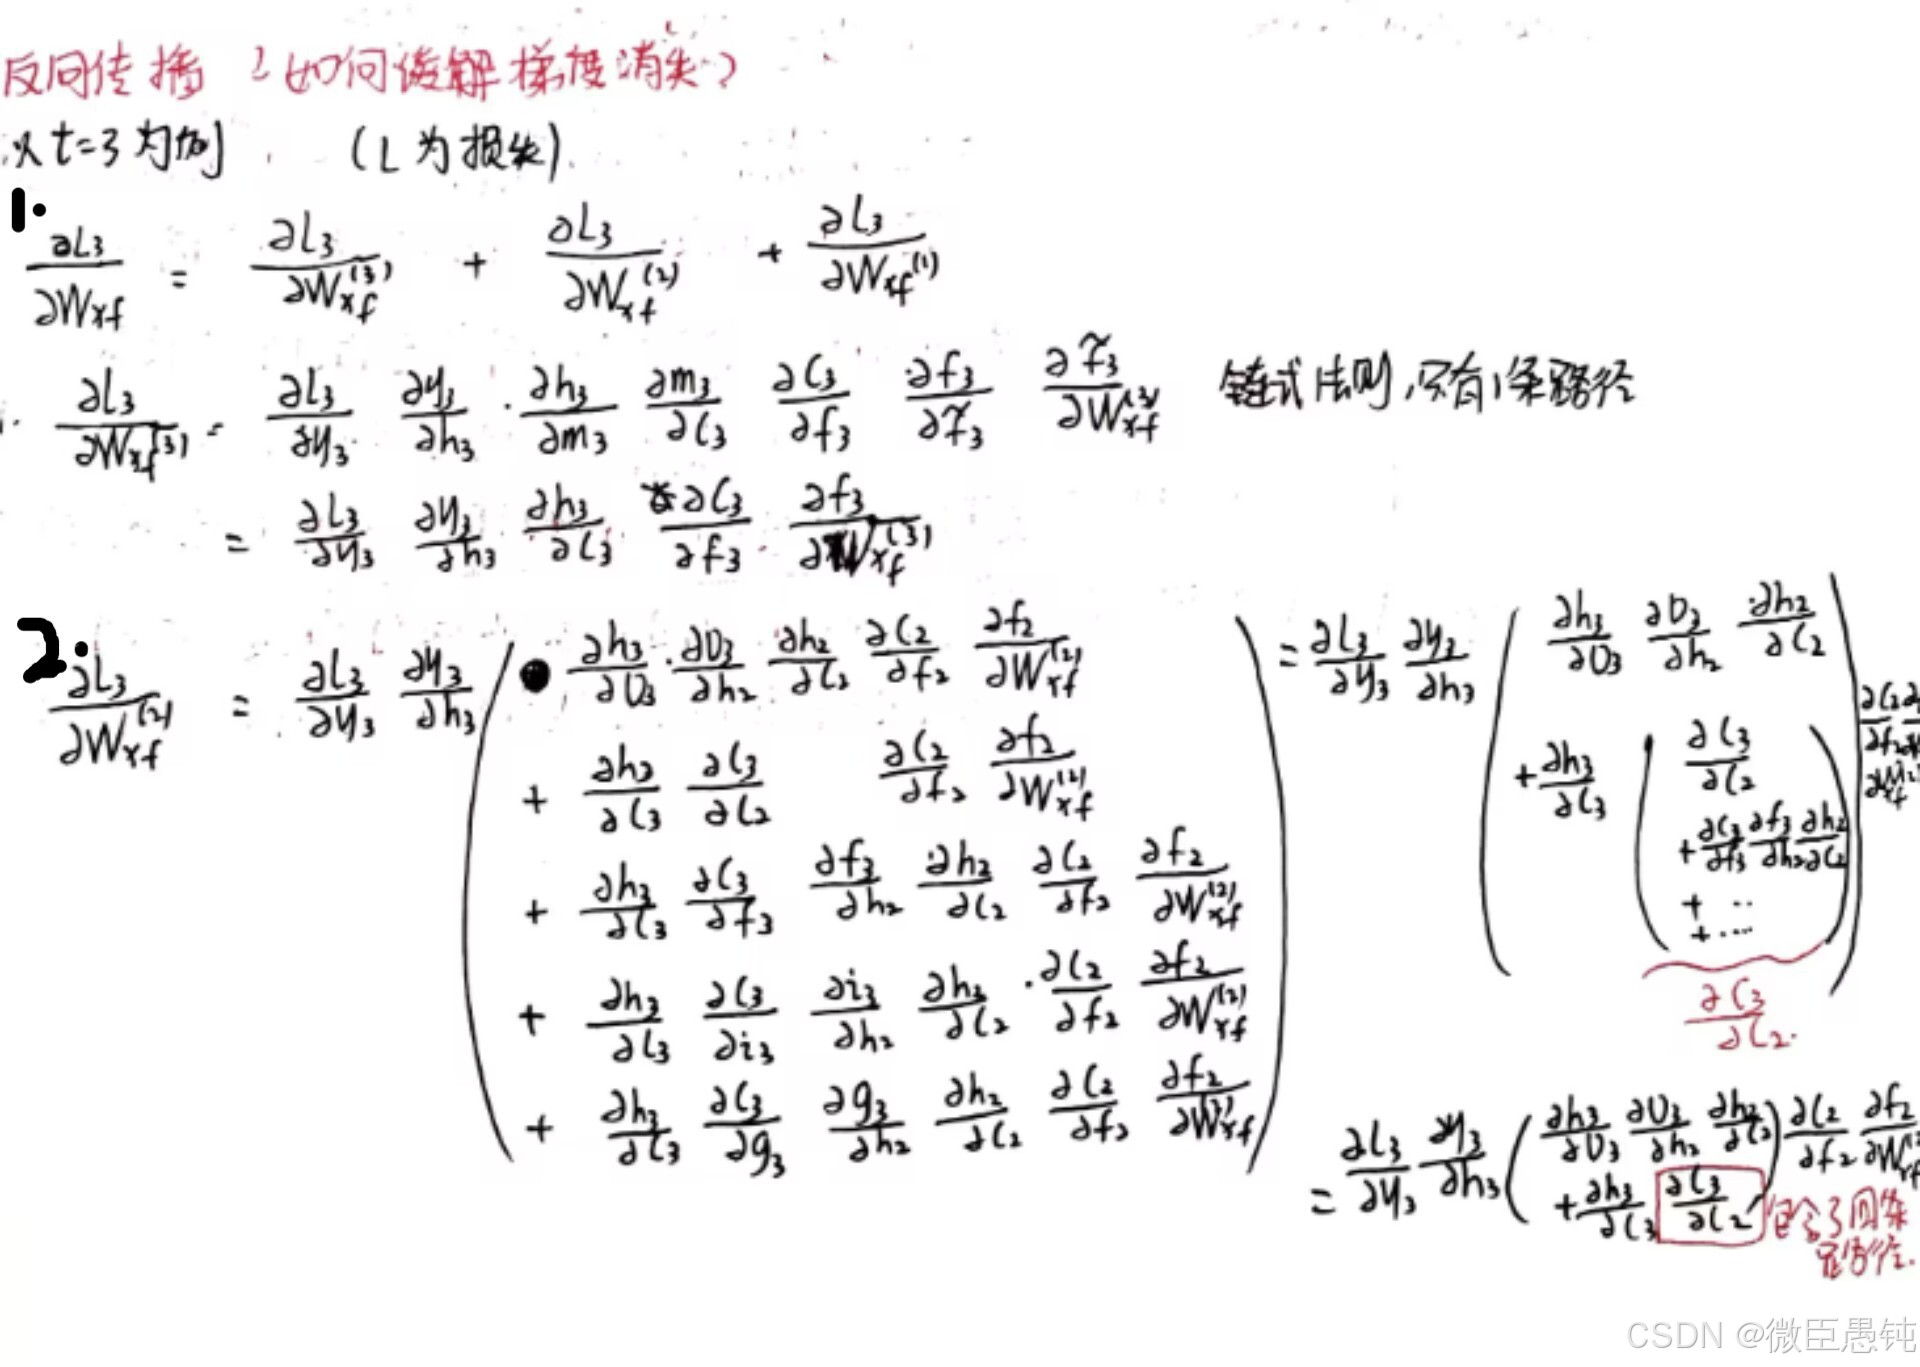 反向传播 (如何缓解梯度消失?)
以 t=3 为例 (L 为损失)
1.
∂L₃/∂Wxf = ∂L₃/∂Wxf⁽³⁾ + ∂L₃/∂Wxf⁽²⁾ + ∂L₃/∂Wxf⁽¹⁾
∂L₃/∂Wxf⁽³⁾ = ∂L₃/∂y₃ ∂y₃/∂h₃ · ∂h₃/∂m₃ ∂m₃/∂C₃ ∂C₃/∂f₃ ∂f₃/∂f̃₃ ∂f̃₃/∂Wxf⁽³⁾ 链式法则,只有1条路径
= ∂L₃/∂y₃ ∂y₃/∂h₃ ∂h₃/∂C₃ ∂C₃/∂f₃ ∂f₃/∂Wxf⁽³⁾
2.
∂L₃/∂Wxf⁽²⁾ = ∂L₃/∂y₃ ∂y₃/∂h₃ ( ∂h₃/∂O₃ · ∂O₃/∂h₂ ∂h₂/∂C₂ ∂C₂/∂f₂ ∂f₂/∂Wxf⁽²⁾
+ ∂h₃/∂C₃ ∂C₃/∂C₂ ∂C₂/∂f₂ ∂f₂/∂Wxf⁽²⁾
+ ∂h₃/∂C₃ ∂C₃/∂f₃ ∂f₃/∂h₂ ∂h₂/∂C₂ ∂C₂/∂f₂ ∂f₂/∂Wxf⁽²⁾
+ ∂h₃/∂C₃ ∂C₃/∂i₃ ∂i₃/∂h₂ ∂h₂/∂C₂ · ∂C₂/∂f₂ ∂f₂/∂Wxf⁽²⁾
+ ∂h₃/∂C₃ ∂C₃/∂g₃ ∂g₃/∂h₂ ∂h₂/∂C₂ ∂C₂/∂f₂ ∂f₂/∂Wxf⁽²⁾ )
= ∂L₃/∂y₃ ∂y₃/∂h₃ ( ∂h₃/∂O₃ ∂O₃/∂h₂ · ∂h₂/∂C₂
+ ∂h₃/∂C₃ ( ∂C₃/∂C₂
+ ∂C₃/∂f₃ ∂f₃/∂h₂ ∂h₂/∂C₂
+ ..
+ .... ) ) ∂C₂/∂f₂
∂C₃/∂C₂.
= ∂L₃/∂y₃ ∂y₃/∂h₃ ( ∂h₃/∂O₃ ∂O₃/∂h₂ ∂h₂/∂C₂
+ ∂h₃/∂C₃ ∂C₃/∂C₂ ) ∂C₂/∂f₂ ∂f₂/∂Wxf
包含了四条
路径.
CSDN @微臣愚钝